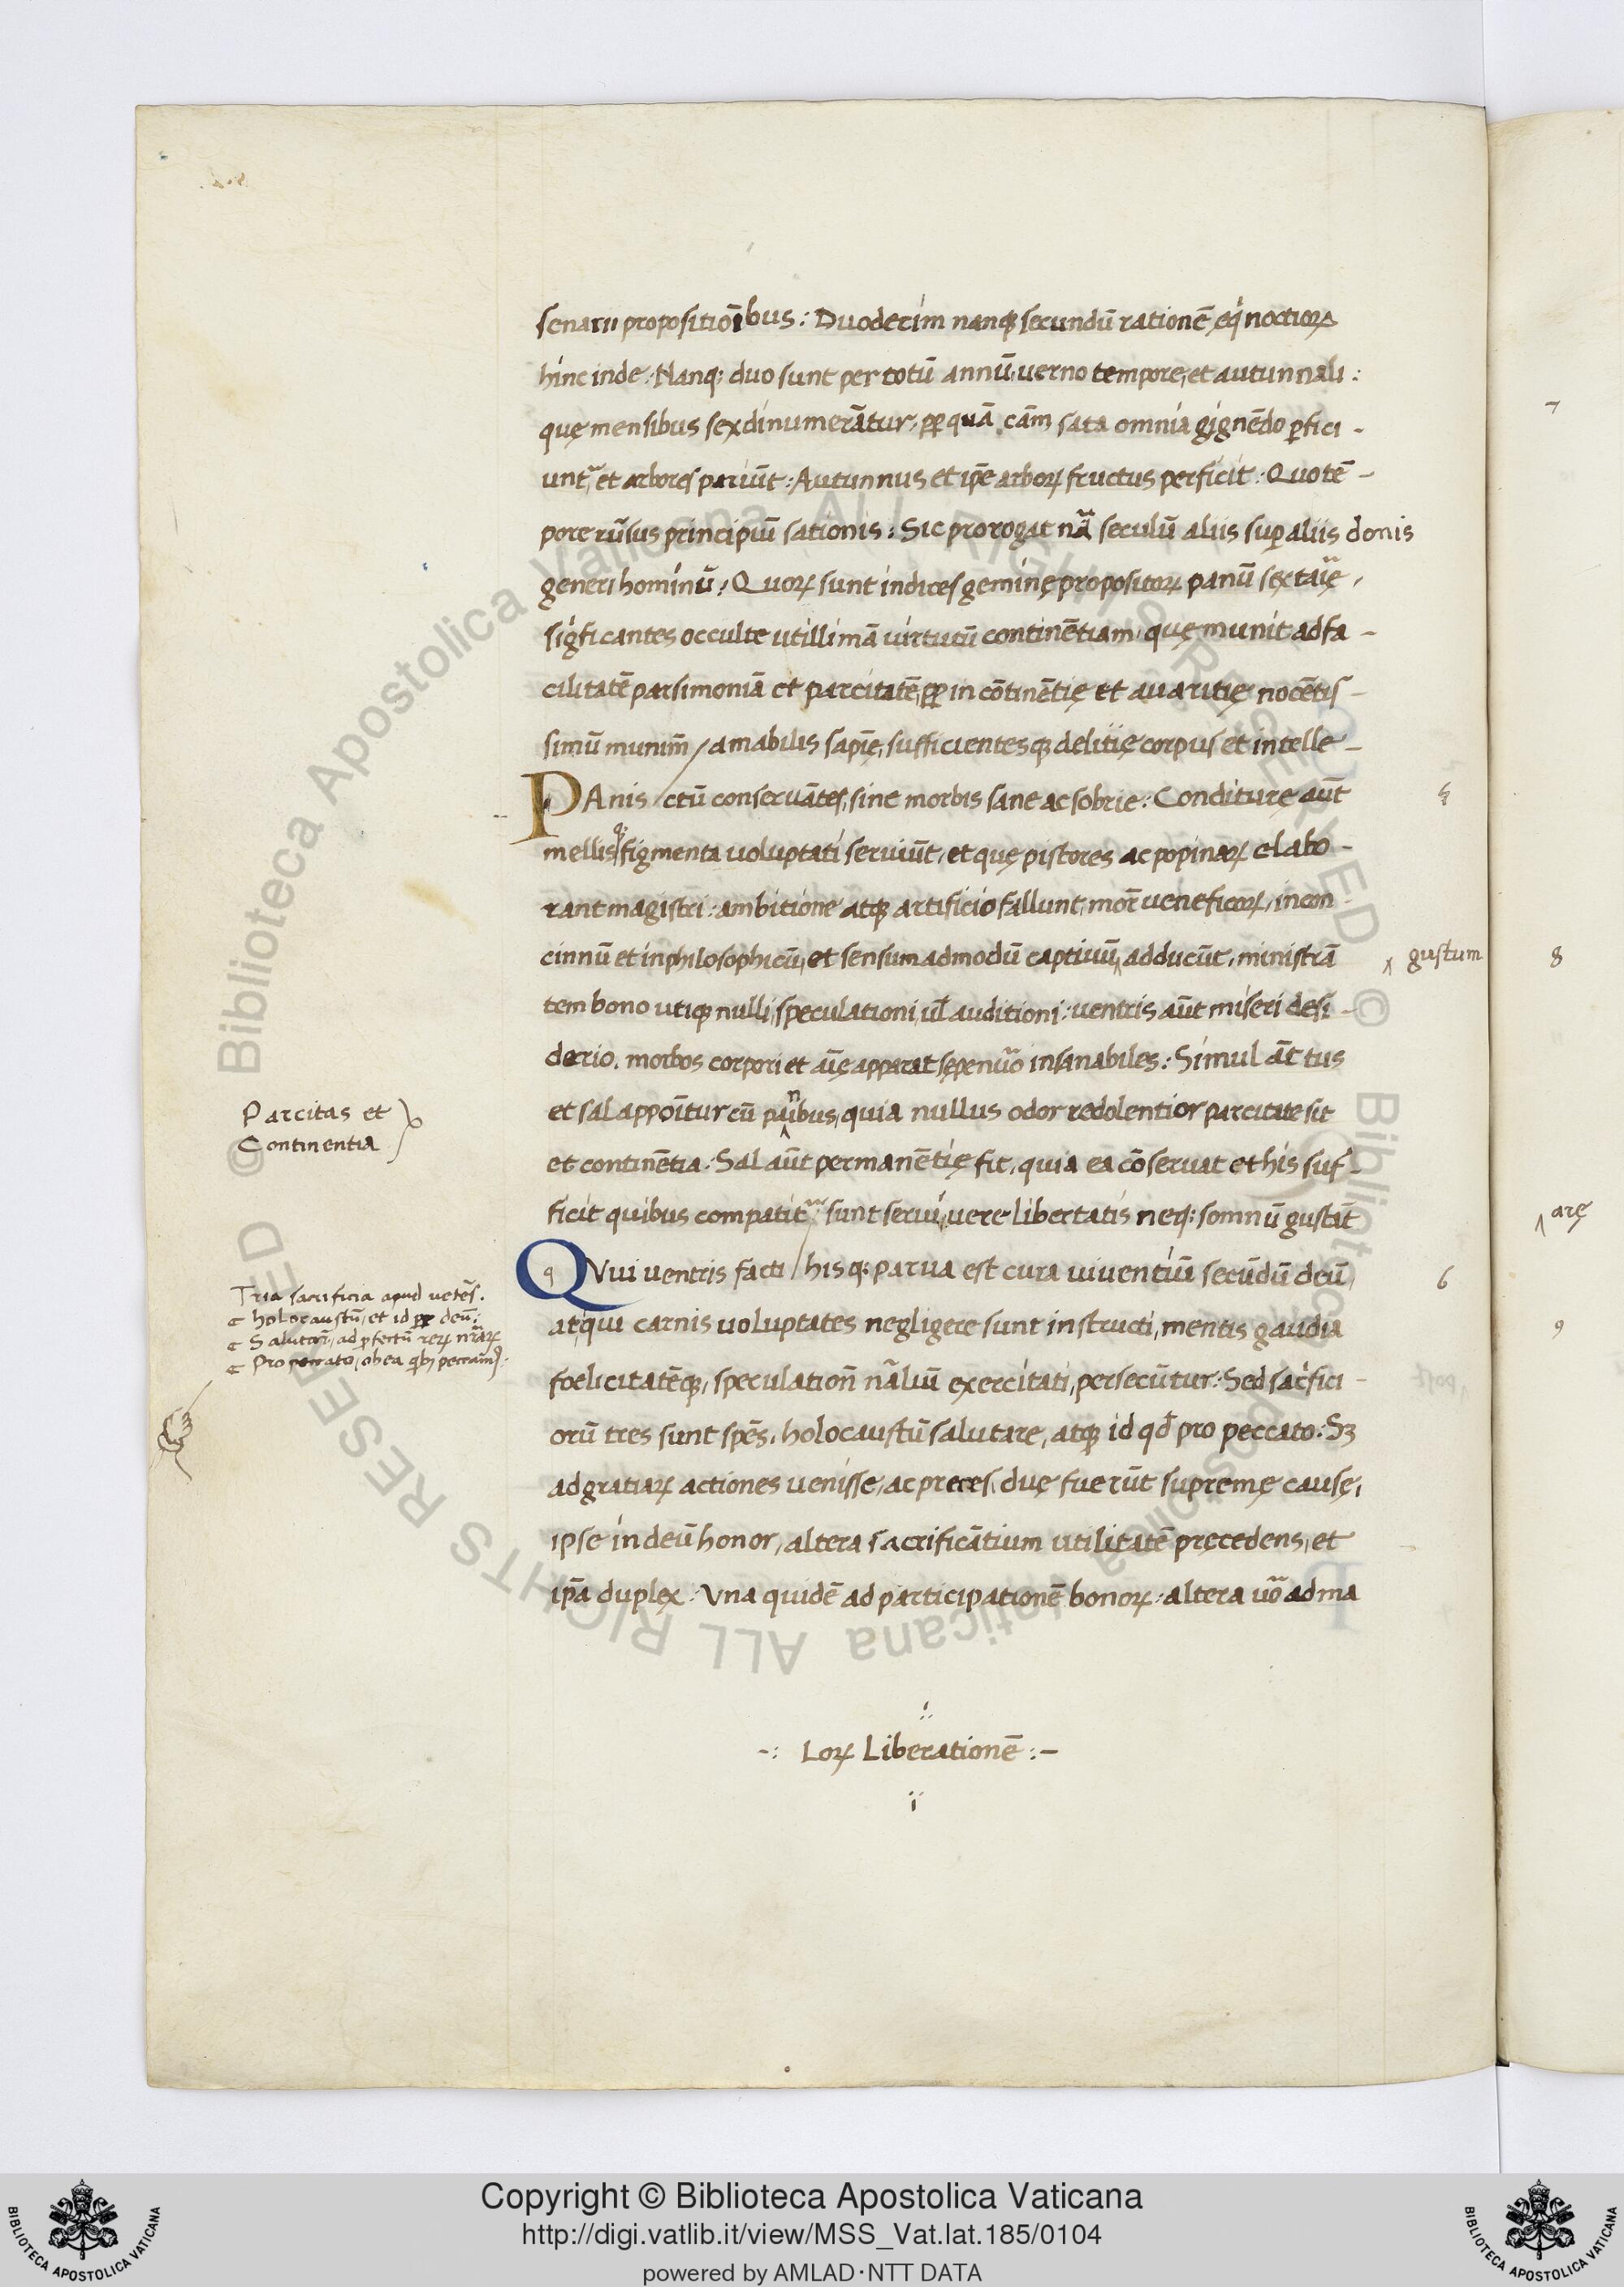 senarii propositiōibus: Duodecim nanq; secundū rationē eq̇noctiorꝝ
hinc inde: Nanq; duo sunt per totū annū, uerno tempore, et autunnali:
quę mensibus sex dinumerātur, ꝓp quā cām sata omnia gignēdo ꝑfici-
unt᷑, et arbores pariūt: Autunnus et ip̄e arborꝝ fructus perficit: Quo tē-
pore rūsus principiū sationis: Sic prorogat nā seculū aliis suꝑ aliis donis
generi hominū: Quorꝝ sunt indices geminę propositorꝝ panū sextaię,
siġficantes occulte utillimā uirtutū continētiam, quę munit ad fa-
cilitatē parsimoniā et parcitatē, ꝓp in cōtinētię et auaritię nocētis-
simū munim̄ / amabilis sapīę, sufficientesq; delitię corpus et intelle-
PAnis / ctū conseruātes, sine morbis sane ac sobrie: Conditurę aūt
mellisq; figmenta uoluptati seruiūt, et quę pistores ac popinarꝝ elabo-
rant magistri: ambitione atq; artificio fallunt, mor̄ ueneficorꝝ, incon-
cinnū et inphilosophicū, et sensum admodū captiuū ‸ adducūt, ministrā
‸ gustum
tem bono utiq; nulli, speculationi, ul̄ auditioni: uentris aūt miseri desi-
derio. morbos corpori et aīę apparat sępenūo insanabiles: Simul aūt tus
et sal appoītur cū panibus, quia nullus odor redolentior parcitate sit
et continētia: Sal aūt permanētię fit, quia ea cōseruat et his suf-
ficit quibus compatit᷑ / sunt serui, uere libertatis neq; somnū gustāt
QVui uentris facti / hisq; parua est cura uiuentiū secūdū deū,
atqui carnis uoluptates negligere sunt instructi, mentis gaudia
foelicitatēq;, speculation̄ nāliū exercitati, persecūtur: Sed sac̄fici-
orū tres sunt spēs, holocaustū salutare, atq; id qđ pro peccato: Sꝫ
ad gratiarꝝ actiones uenisse, ac preces, duę fuerūt supremę causę,
ipse in deū honor, altera sacrificātium utilitatē pręcedens, et
ip̄a duplex: Vna quidē ad participationē bonorꝝ: altera uō ad ma
-: Lorꝝ Liberationē :-
Parcitas et
Continentia
Tria sacrificia apud ueteres.
holocaustū, et id ꝓp deū:
Salutar̄, ad ꝑfectū rerꝝ nr̄arꝝ
Pro peccato, ob ea qb; peccam̄9:
7
8
‸ arę
6
9
Copyright © Biblioteca Apostolica Vaticana
http://digi.vatlib.it/view/MSS_Vat.lat.185/0104
powered by AMLAD·NTT DATA
BIBLIOTECA APOSTOLICA VATICANA
BIBLIOTECA APOSTOLICA VATICANA
© Biblioteca Apostolica Vaticana ALL RIGHTS RESERVED
© Biblioteca Apostolica Vaticana ALL RIGHTS RESERVED